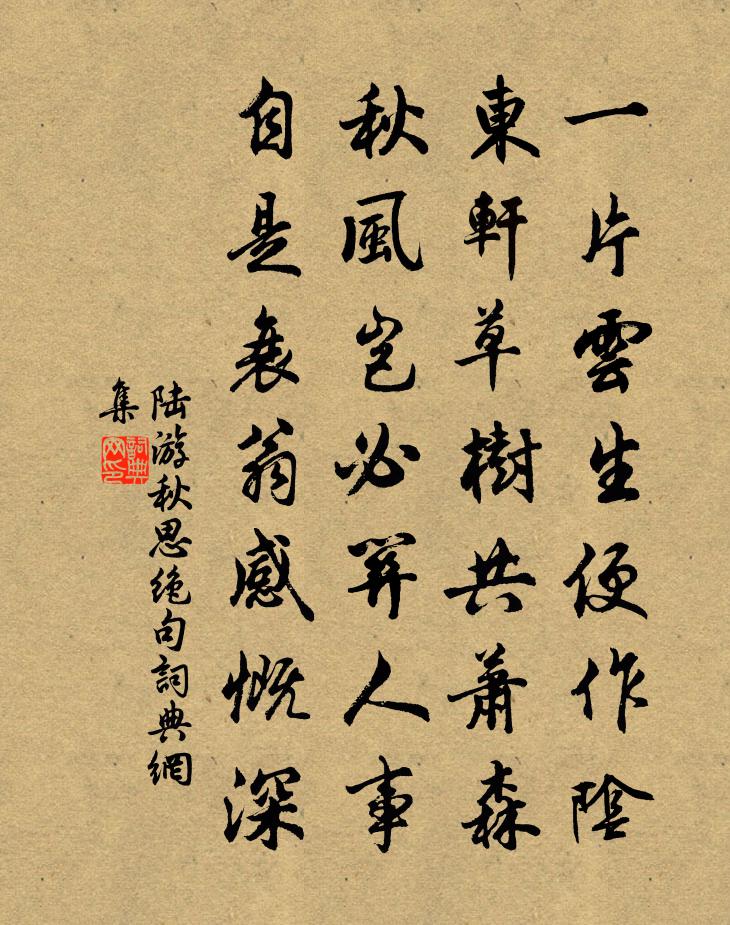 一片雲生便作陰
東軒草樹共蕭森
秋風豈必關人事
自是衰翁感慨深
陸游秋思絶句詞典網
集
詞典
网印